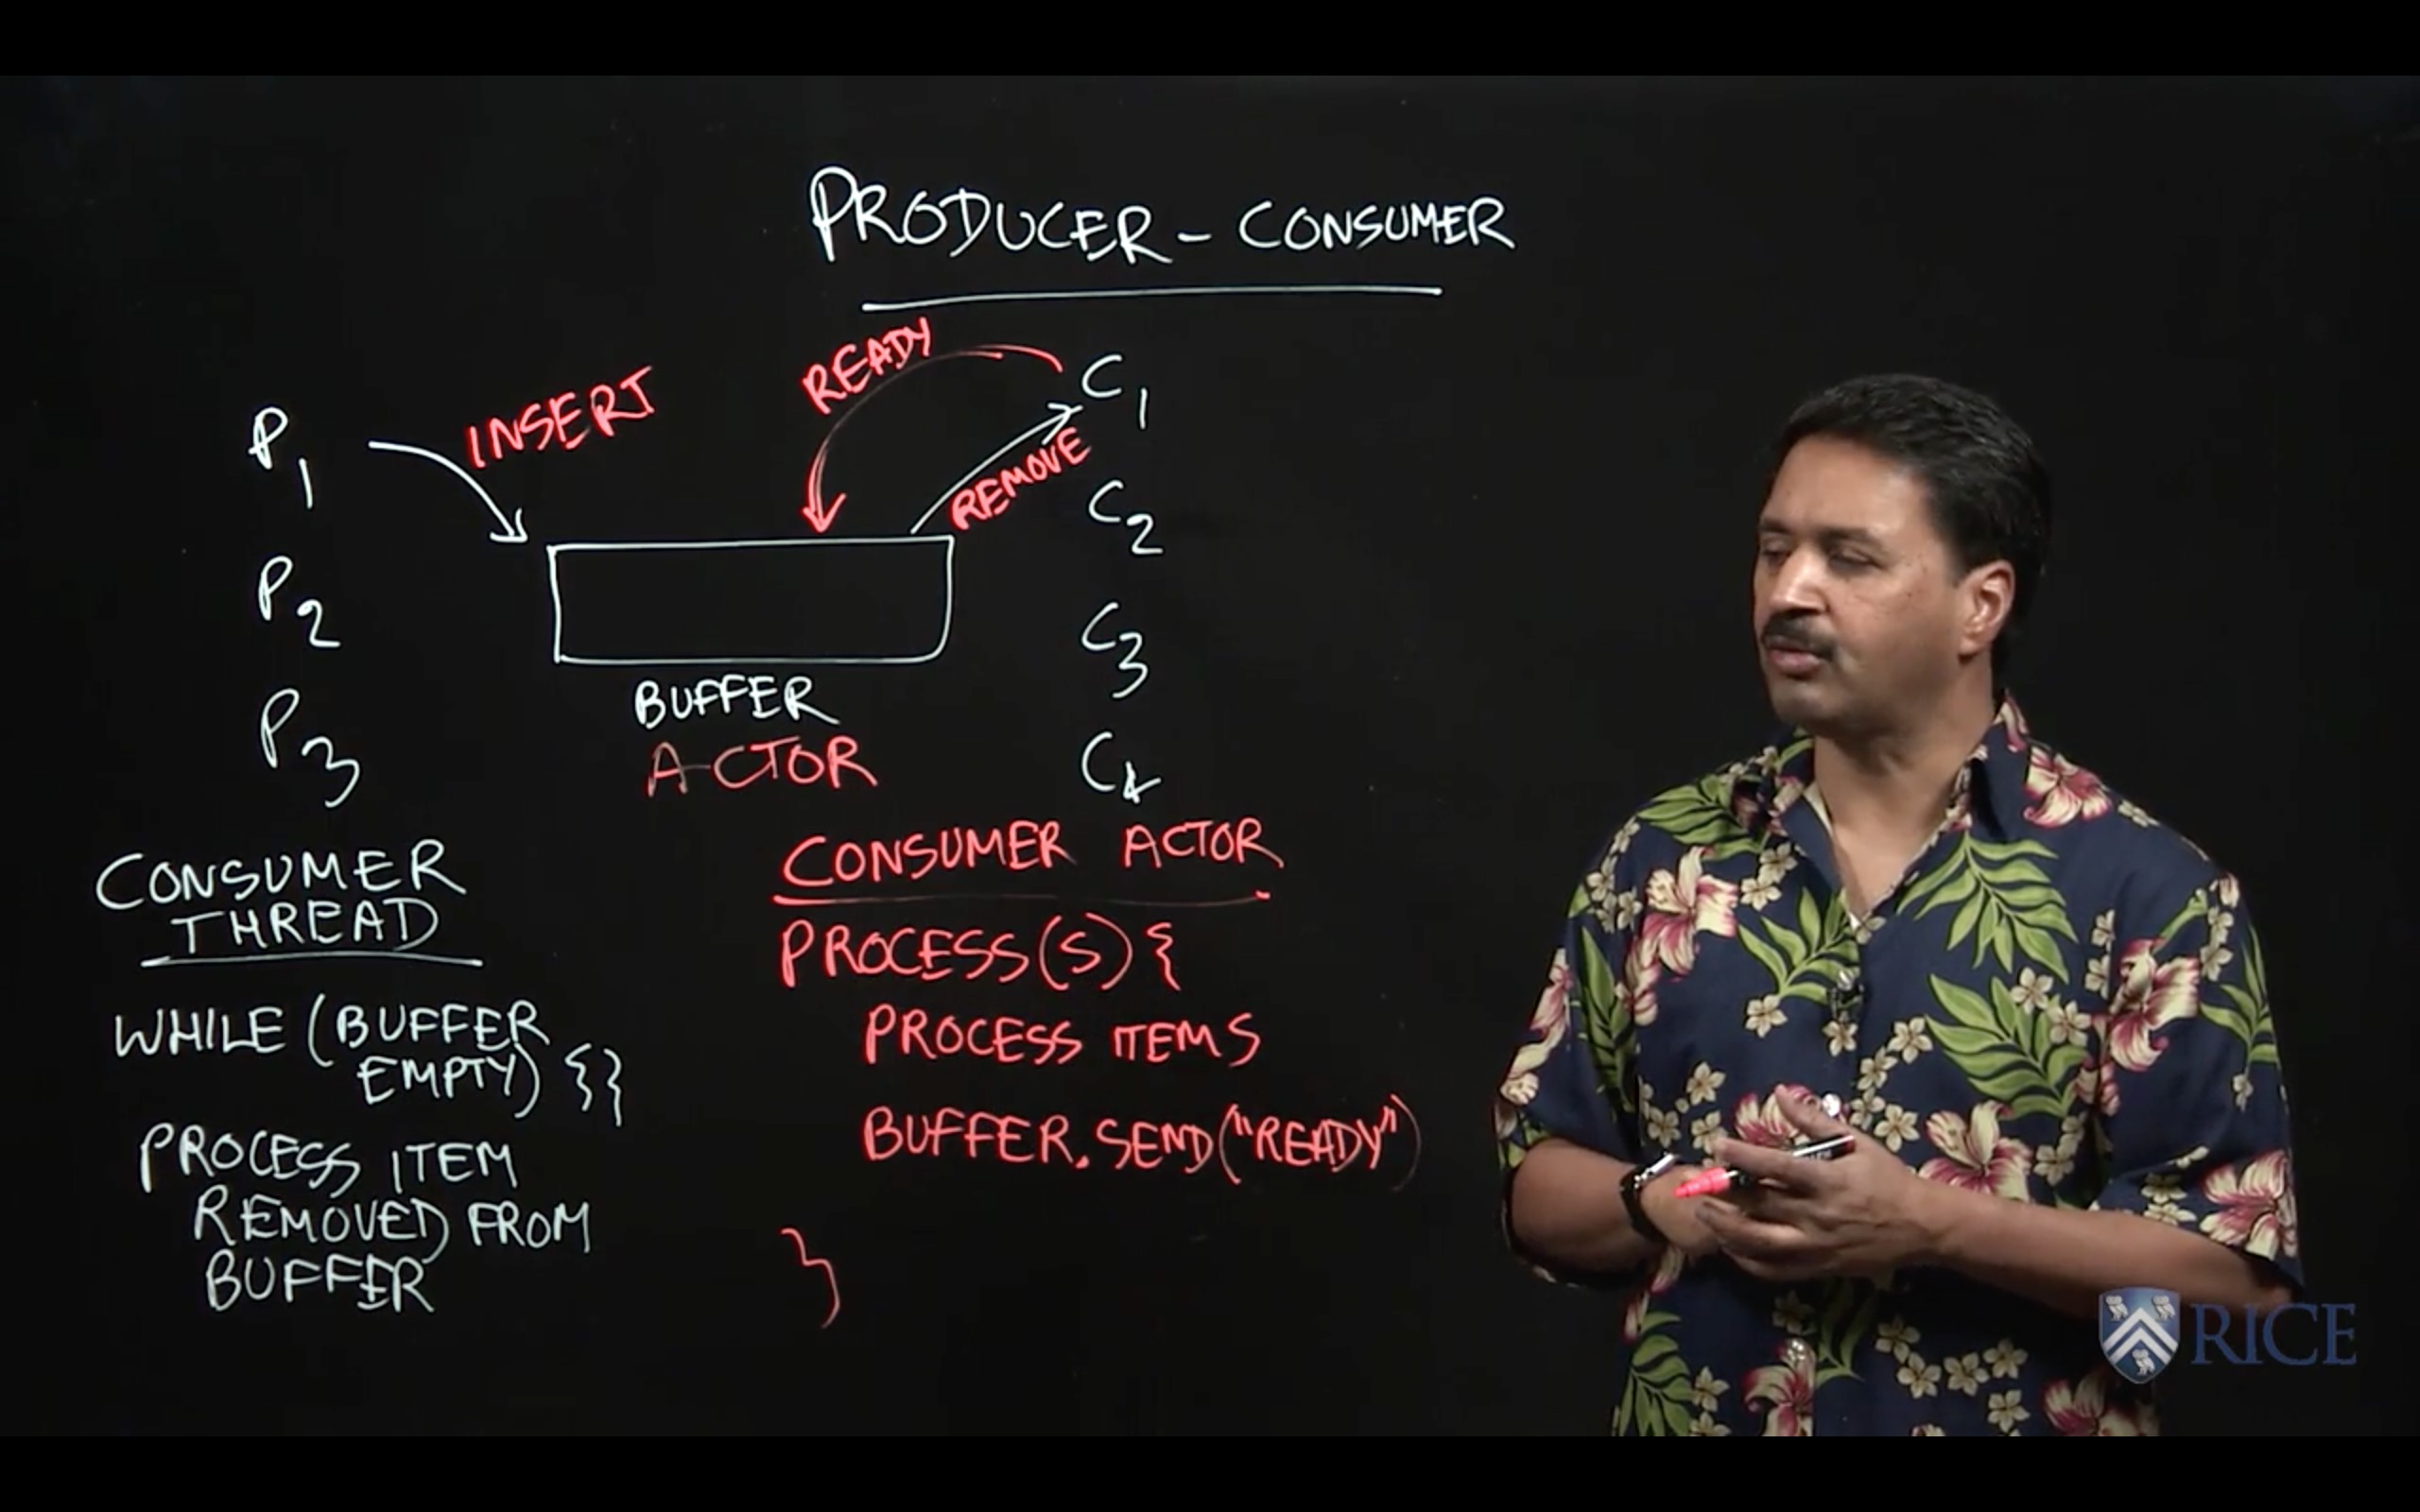 PRODUCER - CONSUMER
READY
INSERT
REMOVE
P1
P2
P3
C1
C2
C3
C4
BUFFER
ACTOR
CONSUMER
THREAD
WHILE (BUFFER
EMPTY) {}
PROCESS ITEM
REMOVED FROM
BUFFER
CONSUMER ACTOR
PROCESS(S) {
PROCESS ITEMS
BUFFER.SEND("READY")
}
RICE